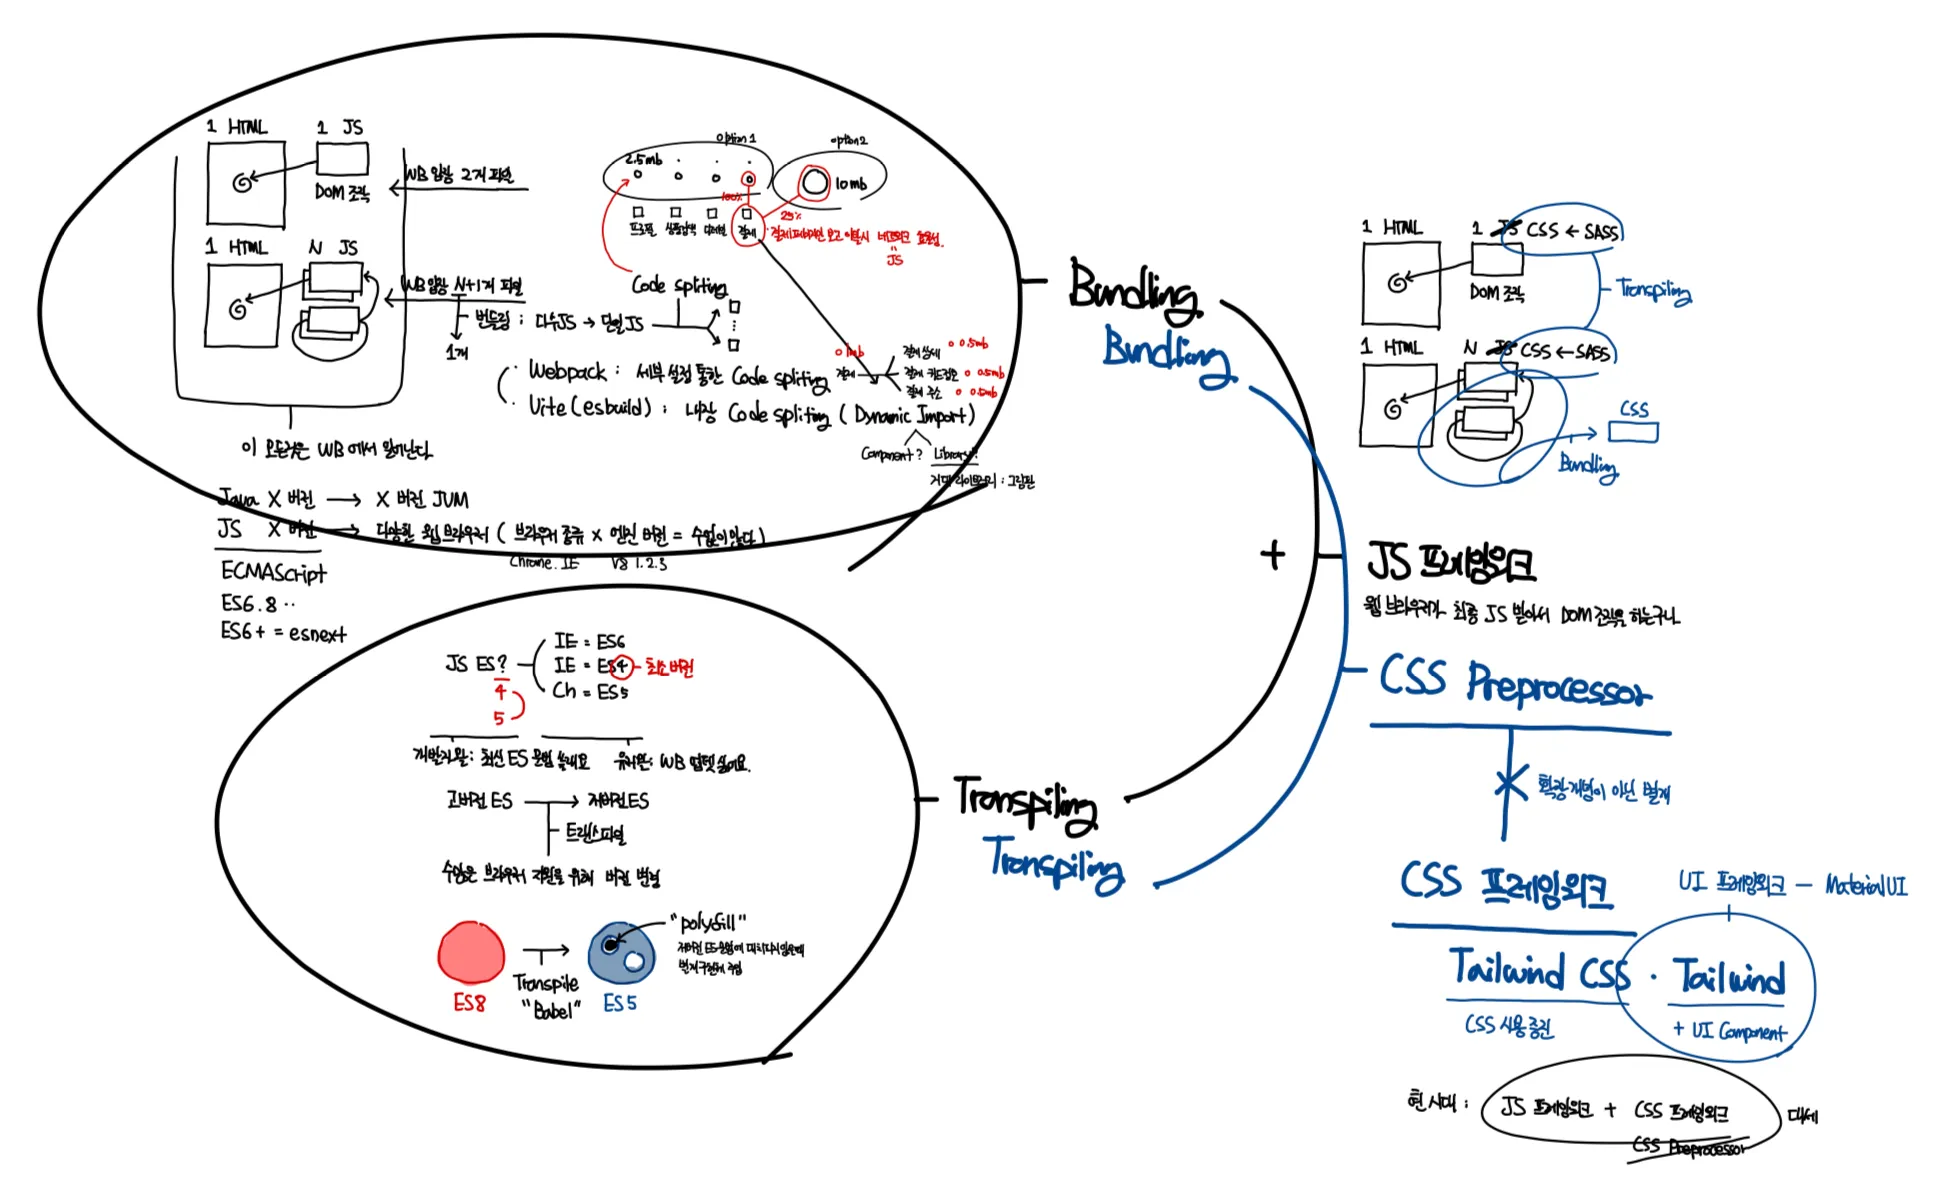 1 HTML 1 JS
DOM 조작
WB 입장 2개 파일
1 HTML N JS
WB 입장 N+1개 파일
1개
번들링 : 다수JS → 단일JS
이 모든것은 WB 에서 일어난다
option 1
2.5mb
option 2
10mb
100%
25%
프로필 상품검색 디테일 결제
결제페이지만 보고 이탈시 네트워크 효율성.
JS
Code spliting
Webpack : 세부 설정 통한 Code spliting
Vite (esbuild) : 내장 Code spliting ( Dynamic Import )
Component? Library?
거대 라이브러리 : 그림판
1mb
결제
결제 상세 0.5mb
결제 카드정보 0.5mb
결제 주소 0.5mb
Java X 버전 → X 버전 JVM
JS X 버전 → 다양한 웹 브라우저 ( 브라우저 종류 × 엔진 버전 = 수없이 많다 )
Chrome. IE V8 1.2.3
ECMAScript
ES6.8 ..
ES6+ = esnext
JS ES?
4
5
IE = ES6
IE = ES4 - 최소 버전
Ch = ES5
개발자 왈 : 최신 ES 문법 쓸래요
유저 왈 : WB 업뎃 싫어요.
고버전 ES → 저버전 ES
트랜스파일
수많은 브라우저 지원을 위해 버전 변환
ES8
Transpile
"Babel"
ES5
"polyfill"
Bundling
Bundling
Transpiling
Transpiling
+
1 HTML 1 JS CSS ← SASS
DOM 조작
Transpiling
1 HTML N JS CSS ← SASS
CSS
Bundling
JS 프레임워크
웹 브라우저가 최종 JS 받아서 DOM 조작을 하는구나
CSS Preprocessor
확장 개념이 아닌 별개
CSS 프레임워크
UI 프레임워크 — Material UI
Tailwind CSS · Tailwind
CSS 사용 증진
+ UI Component
현 시대 : JS 프레임워크 + CSS 프레임워크 대세
CSS Preprocessor